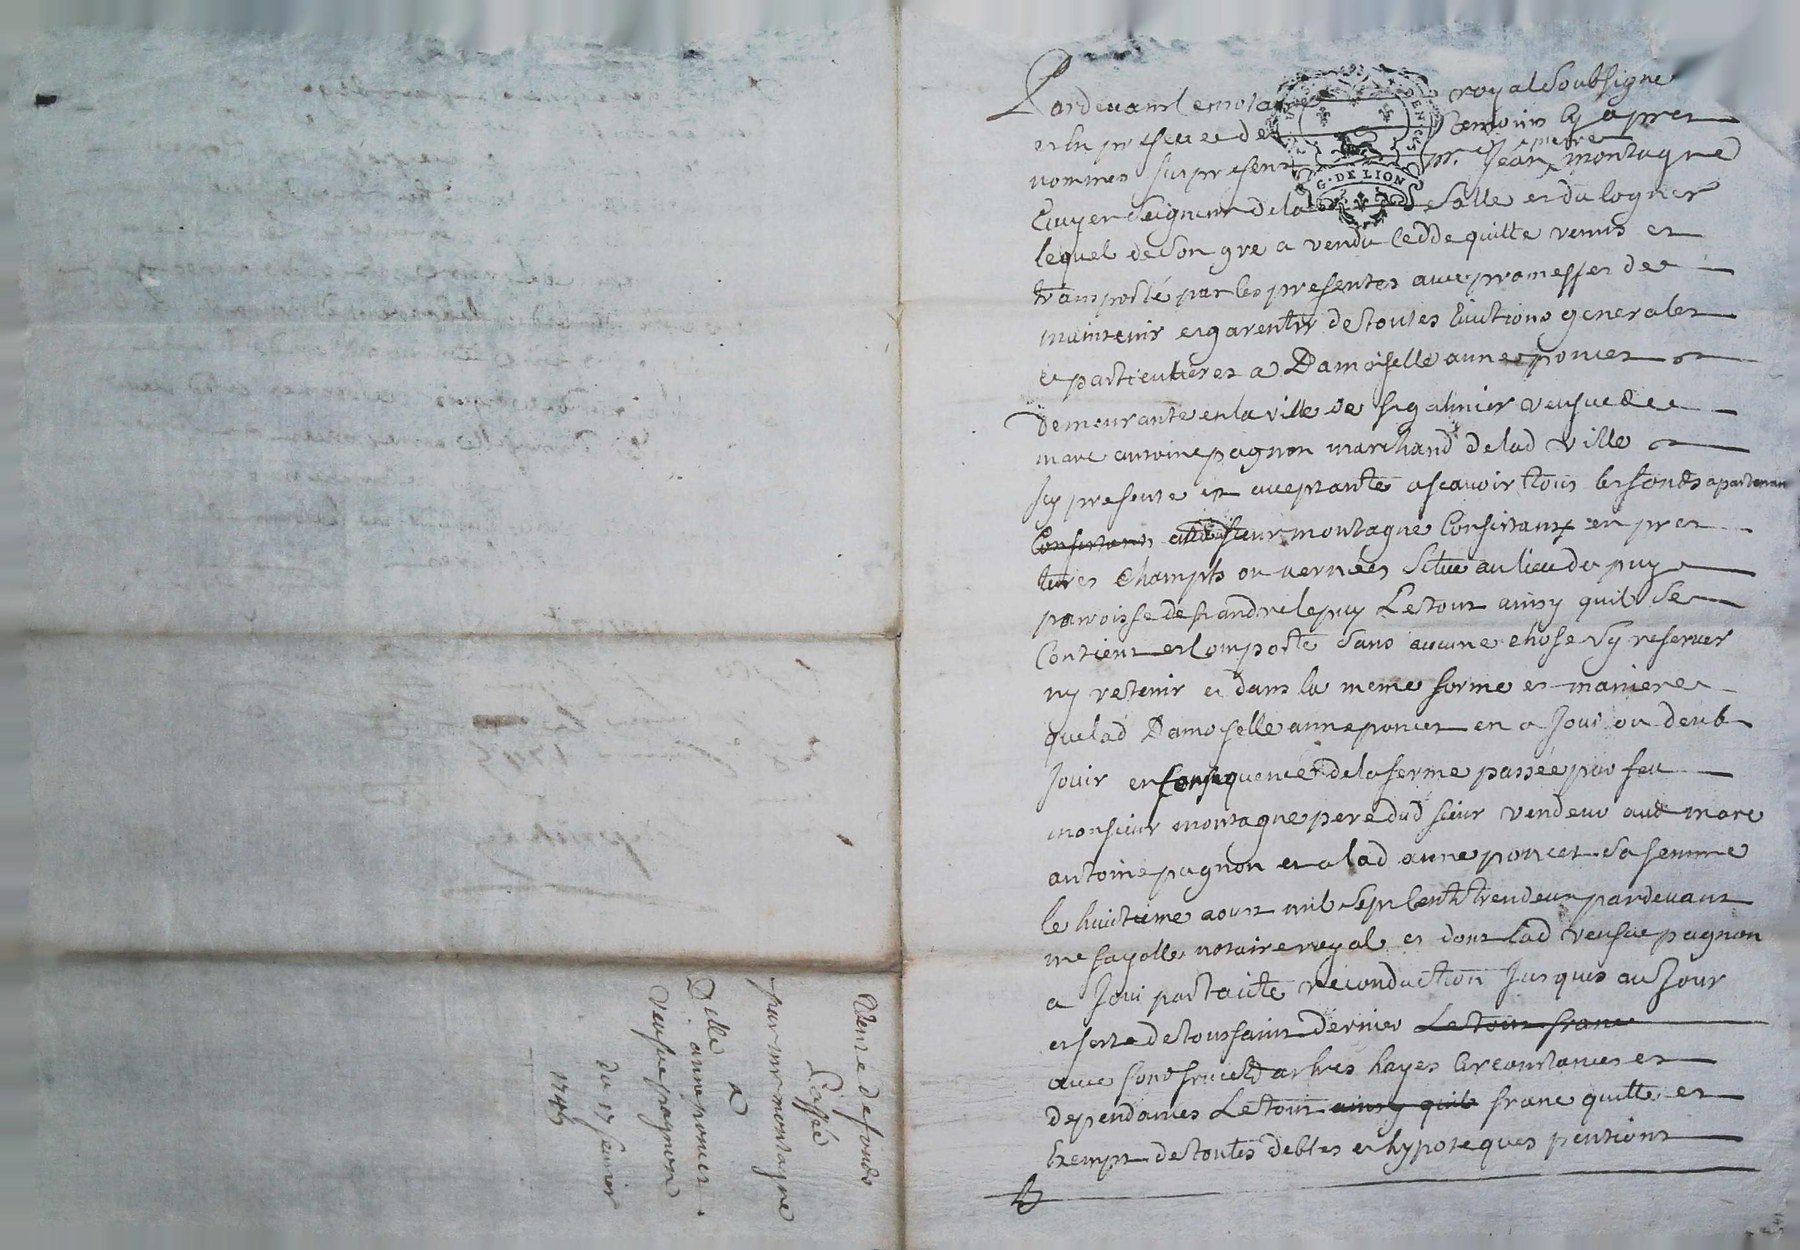 Pardevant le notaire royal Soubsigne
et en presence des temoins cy apres
nommes fut present mr. Jean pierre montagne
Ecuyer Seigneur de la Salle et du
lequel de Son gre a vendu cedde quitte remis et
transporté par les presentes avec promesses de
maintenir et garentir de toutes Evictions generales
et particulieres a Damoiselle anne poncet
demeurante en la ville de st galmier veufve de
marc antoine pagnon marchand de lad ville
icy presente et acceptante ascavoir tous les fonds apartenan
Consistans aud sieur montagne Consistant en pres
terres champts ou vernées Situé au lieu du puy
paroisse de st andré le puy Le tout ainsy quil se
Contient et Comporte Sans aucune chose Sy reserver
ny retenir et dans la meme forme et maniere
que lad Damoiselle anne poncet en a Joui ou deub
Jouir en Consequence de la ferme passée par feu
monsieur montagne pere dud sieur vendeur aud marc
antoine pagnon et a lad anne poncet Sa femme
le huictieme aoust mil Sept Cent trendeux pardevant
me fayolle notaire royal et dont lad veufve pagnon
a Joui par tacite reconduction Jusques au Jour
et feste de toussaint dernier Le tout franc
avec fond fruict arbres hayes Circonstances et
dependances Le tout ainsy quil franc quitte et
Exempt de toutes debtes et hypoteques pentions
Vente de fonds
passée
par mr montagne
a
D.lle anne poncet
veufve pagnon
du 17 fevrier
1745
G. DE LION